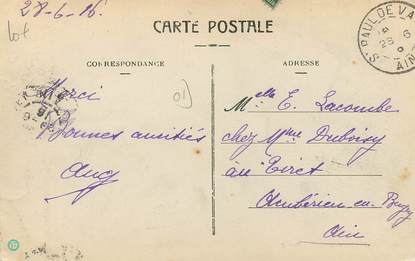 28-6-16.
Lot
CARTE POSTALE
CORRESPONDANCE
ADRESSE
ST PAUL DE VA
28 6
AIN
01
Merci
Bonnes amitiés
Aug
Melle E. Lacombe
chez Mme Duboisy
au Tiret
Ambérieu en Bugey
Ain